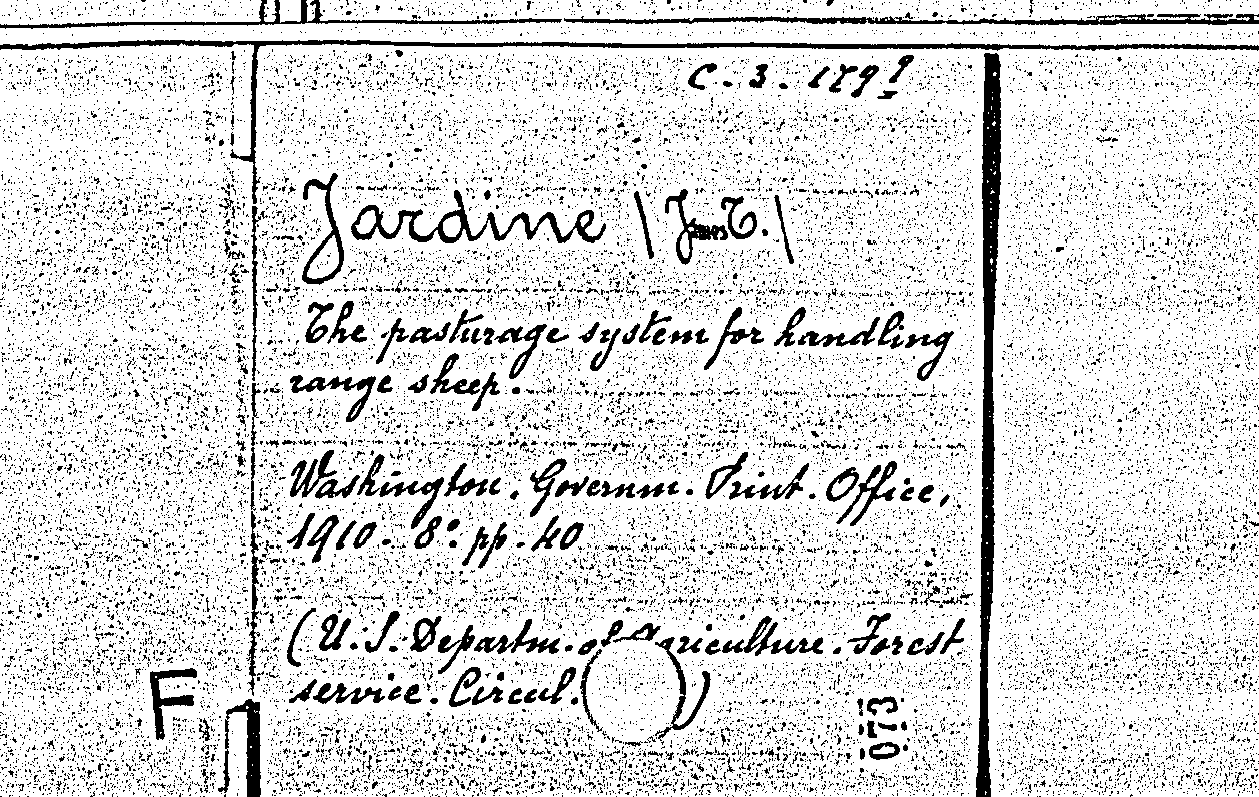 C. 3. 179
Jardine (James T.)
The pasturage system for handling
range sheep.
Washington. Governm. Print. Office,
1910. 8°. pp. 40
(U.S. Departm. of Agriculture. Forest
service. Circul. )
F
073